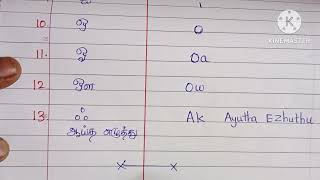 10. ஒ o
11. ஓ oa
12 ஔ ow
13. ஃ Ak Ayutha Ezhuthu
ஆய்த எழுத்து
K
KINEMASTER